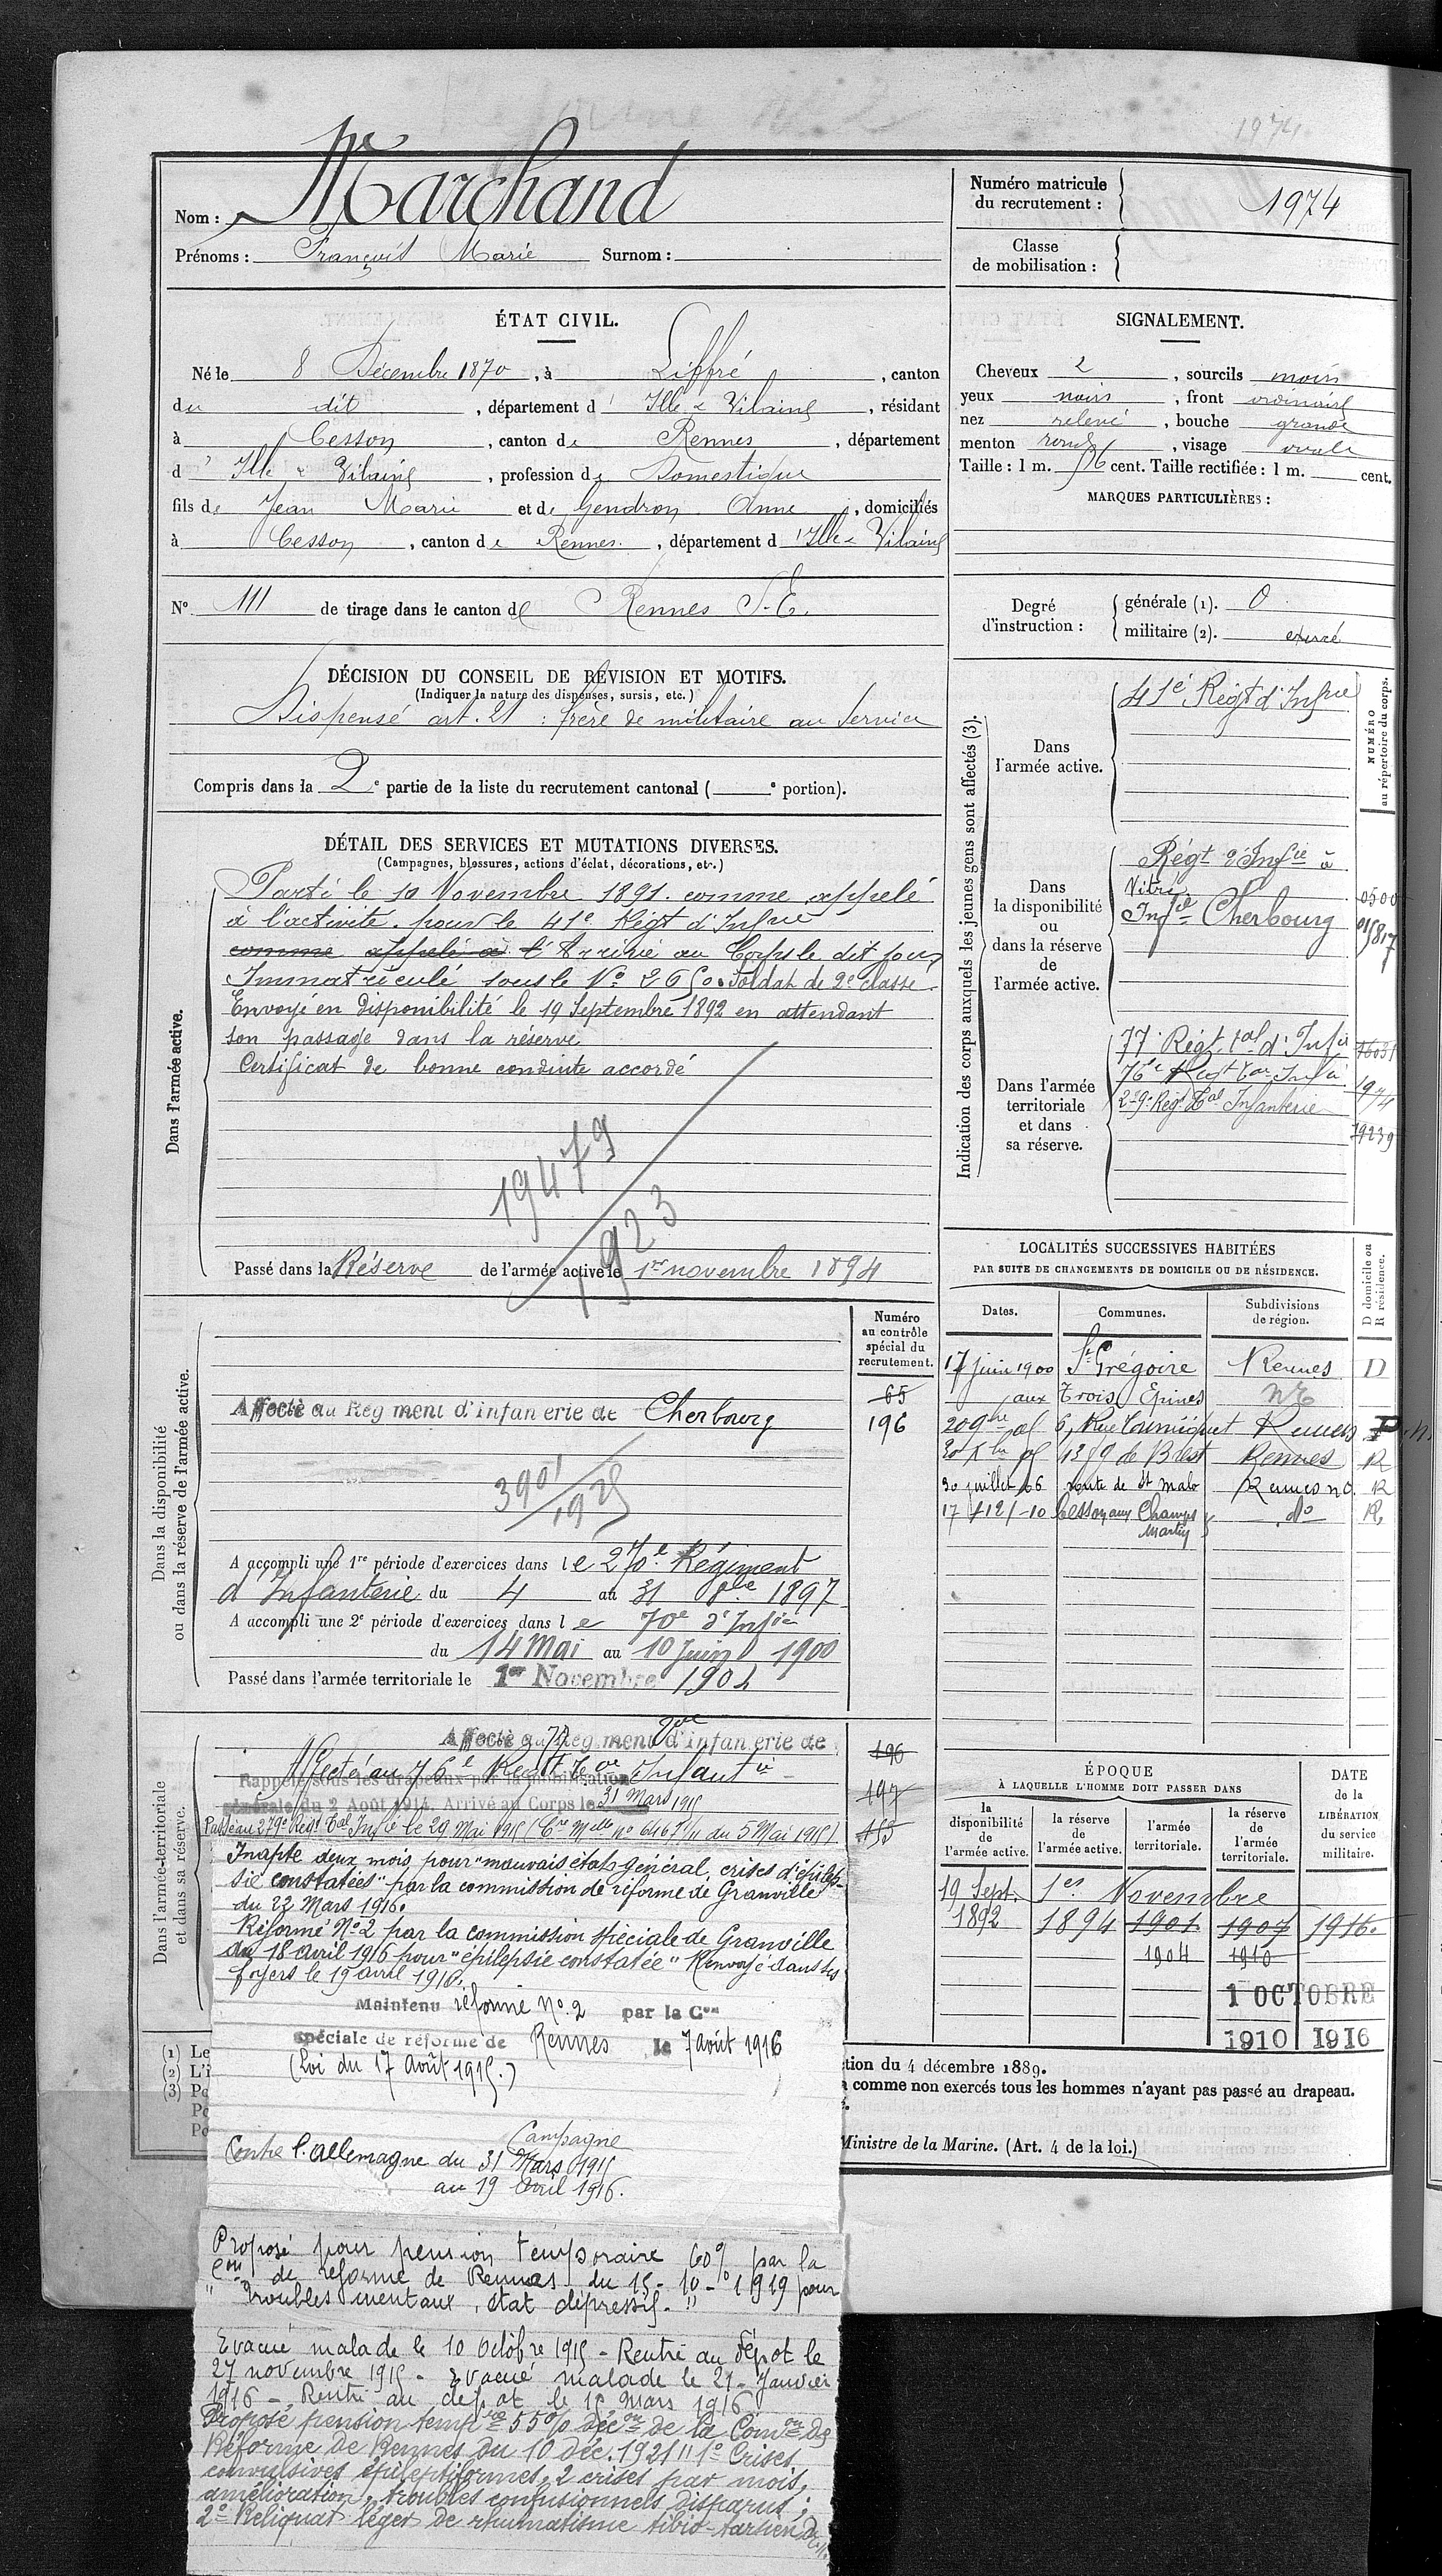 1974
Nom : Marchand
Prénoms : François Marie Surnom :
Numéro matricule du recrutement : 1974
Classe de mobilisation :
ÉTAT CIVIL.
Né le 8 Décembre 1870, à Liffré, canton
du dit, département d'Ille & Vilaine, résidant
à Cesson, canton de Rennes, département
d'Ille & Vilaine, profession de Domestique
fils de Jean Marie et de Gendron Anne, domiciliés
à Cesson, canton de Rennes, département d'Ille & Vilaine
N° 111 de tirage dans le canton de Rennes S-E.
SIGNALEMENT.
Cheveux 2, sourcils noirs
yeux noirs, front ordinaire
nez relevé, bouche grande
menton rond, visage ovale
Taille : 1 m. 56 cent. Taille rectifiée : 1 m. cent.
MARQUES PARTICULIÈRES :
Degré d'instruction : générale (1). 0
militaire (2). exercé
DÉCISION DU CONSEIL DE RÉVISION ET MOTIFS.
(Indiquer la nature des dispenses, sursis, etc.)
Dispensé art. 21 : frère de militaire au service
Compris dans la 2e partie de la liste du recrutement cantonal ( e portion).
DÉTAIL DES SERVICES ET MUTATIONS DIVERSES.
(Campagnes, blessures, actions d'éclat, décorations, etc.)
Dans l'armée active.
Parti le 10 Novembre 1891. comme appelé
à l'activité pour le 41e Régt d'Infrie
comme appelé à l' Arrivé au Corps le dit jour
Immatriculé sous le N° 2650. Soldat de 2e classe.
Envoyé en Disponibilité le 19 Septembre 1892 en attendant
son passage dans la réserve
Certificat de bonne conduite accordé
19479
1923
Passé dans la Réserve de l'armée active le 1er novembre 1894
Indication des corps auxquels les jeunes gens sont affectés (3).
NUMÉRO au répertoire du corps.
Dans l'armée active.
41e Régt d'Infrie
Dans la disponibilité ou dans la réserve de l'armée active.
Régt d'Infie à
Vitré 0500
Infie Cherbourg
Dans l'armée territoriale et dans sa réserve.
77e Régt tal d'Infie
76e Régt Ter Infie 1974
279e Régt Tal Infanterie
LOCALITÉS SUCCESSIVES HABITÉES
PAR SUITE DE CHANGEMENTS DE DOMICILE OU DE RÉSIDENCE.
Dates. Communes. Subdivisions de région. D domicile ou R résidence.
17 Juin 1900 St Grégoire Rennes D
aux Trois Epines
Rennes
de Brest Rennes R
30 juillet 06 route de St Malo Rennes R
17/12/-10 Cesson aux Champs Martin do R.
Dans la disponibilité ou dans la réserve de l'armée active.
Numéro au contrôle spécial du recrutement.
65
196
Affecté au Régiment d'infanterie de Cherbourg
A accompli une 1re période d'exercices dans le 270e Régiment
d'Infanterie du 4 au 31 8bre 1897
A accompli une 2e période d'exercices dans le 70e d'Infie
du 14 Mai au 10 Juin 1900
Passé dans l'armée territoriale le 1er Novembre 1904
Dans l'armée territoriale et dans sa réserve.
Affecté au 77 Régiment d'infanterie de
Affecté au 76e Regt Infantie
Rappelé sous les drapeaux par la mobilisation
générale du 2 Août 1914. Arrivé au Corps le 31 Mars 1915
Passé au 279e Régt Tal Infie le 29 Mai 1915 du 5 Mai 1915
Inapte deux mois pour "mauvais état général, crises d'épilep-
sie constatées" par la commission de réforme de Granville
du 22 Mars 1916.
Réformé N°2 par la commission spéciale de Granville
du 18 avril 1916 pour "épilepsie constatée" Renvoyé dans ses
foyers le 19 avril 1916.
Maintenu réformé No. 2 par la Con
spéciale de réforme de Rennes le 7 août 1916
(Loi du 17 août 1915.)
Campagne
Contre l'Allemagne du 31 Mars 1915
au 19 Avril 1916.
196
197
ÉPOQUE
À LAQUELLE L'HOMME DOIT PASSER DANS
la disponibilité de l'armée active. la réserve de l'armée active. l'armée territoriale. la réserve de l'armée territoriale.
DATE de la LIBÉRATION du service militaire.
19 Sept. 1er Novembre
1892 1894 1901 1907 1916.
1904 1910
1 OCTOBRE
1910 1916
(1) Le
(2) L'i
(3) Po
Po
Po
tion du 4 décembre 1889.
comme non exercés tous les hommes n'ayant pas passé au drapeau.
Ministre de la Marine. (Art. 4 de la loi.)
Proposé pour pension temporaire 60% par la
Con de réforme de Rennes du 15-10-1919 pour
"Troubles mentaux, état dépressif."
Evacué malade le 10 Octobre 1915 - Rentré au dépot le
27 novembre 1915 - Evacué malade le 21 Janvier
1916 - Rentré au dépot le 15 Mars 1916
Proposé pension tempre 55% décon de la Comon de
Réforme de Rennes du 10 déc. 1921 "1° Crises
convulsives épileptiformes, 2 crises par mois,
amélioration, troubles confusionnels disparus ;
2° Reliquat léger de rhumatisme tibio-tarsien